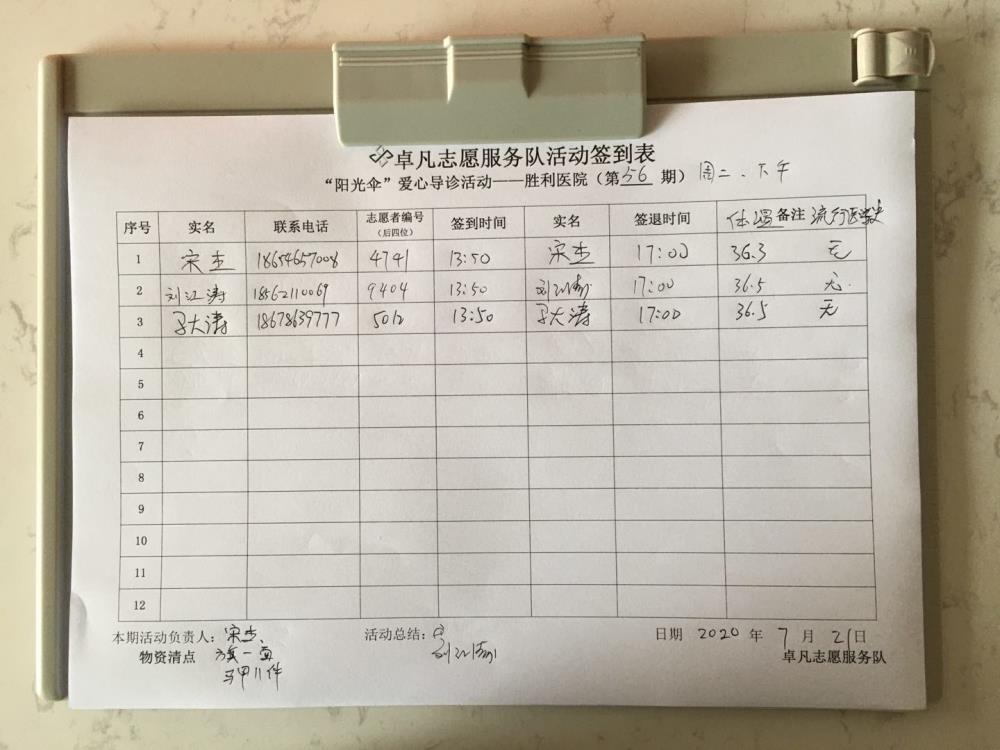 卓凡志愿服务队活动签到表
“阳光伞”爱心导诊活动——胜利医院（第56期） 周二、下午
序号 实名 联系电话 志愿者编号（后四位） 签到时间 实名 签退时间 体温 备注 流行医学史
1 宋杰 18654657008 4741 13:50 宋杰 17:00 36.3 无
2 刘江涛 18562110069 9404 13:50 刘江涛 17:00 36.5 无.
3 大涛 18678639777 5012 13:50 大涛 17:00 36.5 无
4
5
6
7
8
9
10
11
12
本期活动负责人：宋杰、 活动总结： 日期 2020 年 7 月 21 日
物资清点 旗一面 刘江涛 卓凡志愿服务队
马甲11件